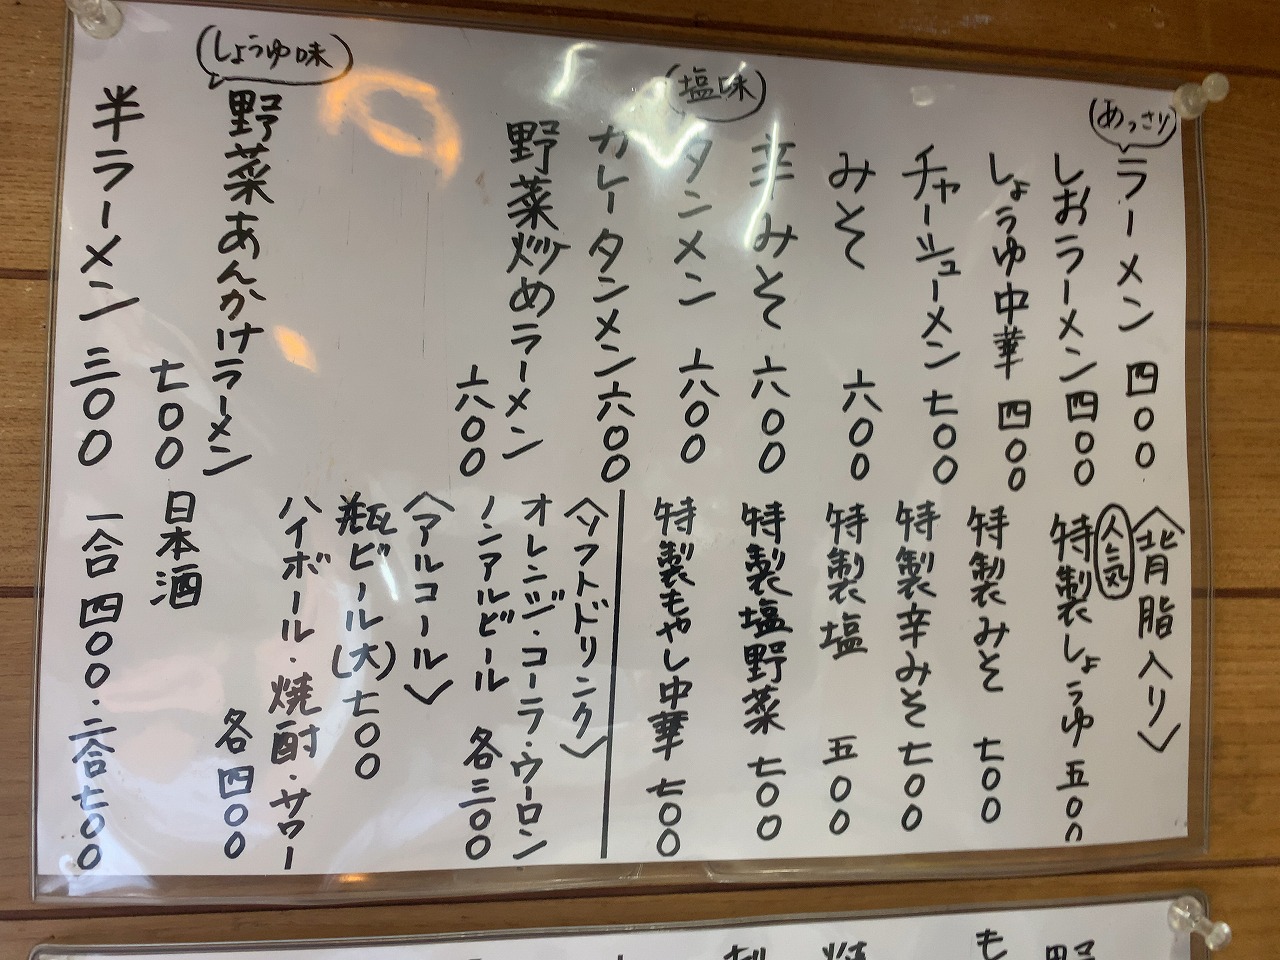 あっさり
ラーメン 四〇〇
しおラーメン 四〇〇
しょうゆ中華 四〇〇
チャーシューメン 七〇〇
みそ 六〇〇
辛みそ 六〇〇
塩味
タンメン 六〇〇
カレータンメン 六〇〇
野菜炒めラーメン
六〇〇
しょうゆ味
野菜あんかけラーメン
七〇〇
半ラーメン 三〇〇
〈背脂入り〉
人気
特製しょうゆ 五〇〇
特製みそ 七〇〇
特製辛みそ 七〇〇
特製塩 五〇〇
特製塩野菜 七〇〇
特製もやし中華 七〇〇
〈ソフトドリンク〉
オレンジ・コーラ・ウーロン
ノンアルビール 各三〇〇
〈アルコール〉
瓶ビール(大) 七〇〇
ハイボール・焼酎・サワー
各四〇〇
日本酒
一合 四〇〇・二合七〇〇
も